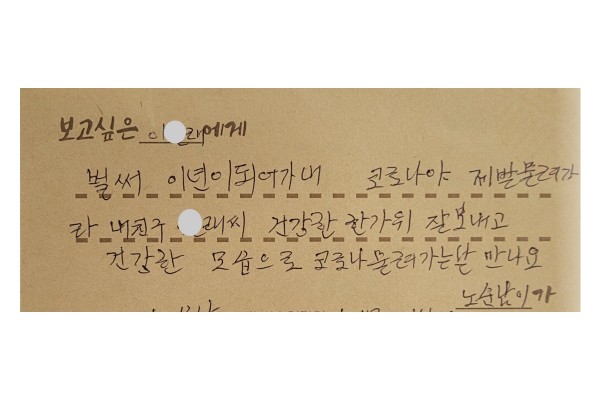 보고싶은 이 래에게
벌써 이년이되어가내 코로나야 제발물러가
라 내친구 래씨 건강한 한가위 잘보내고
건강한 모습으로 코로나물러가는날 만나요
노순남이가